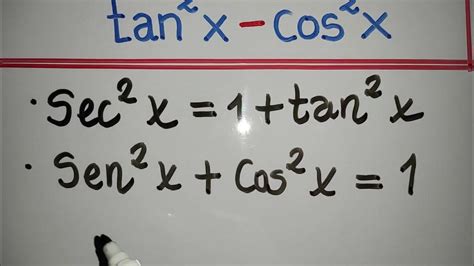 tan²x-cos²x
· Sec²x = 1 + tan²x
· Sen²x + Cos²x = 1